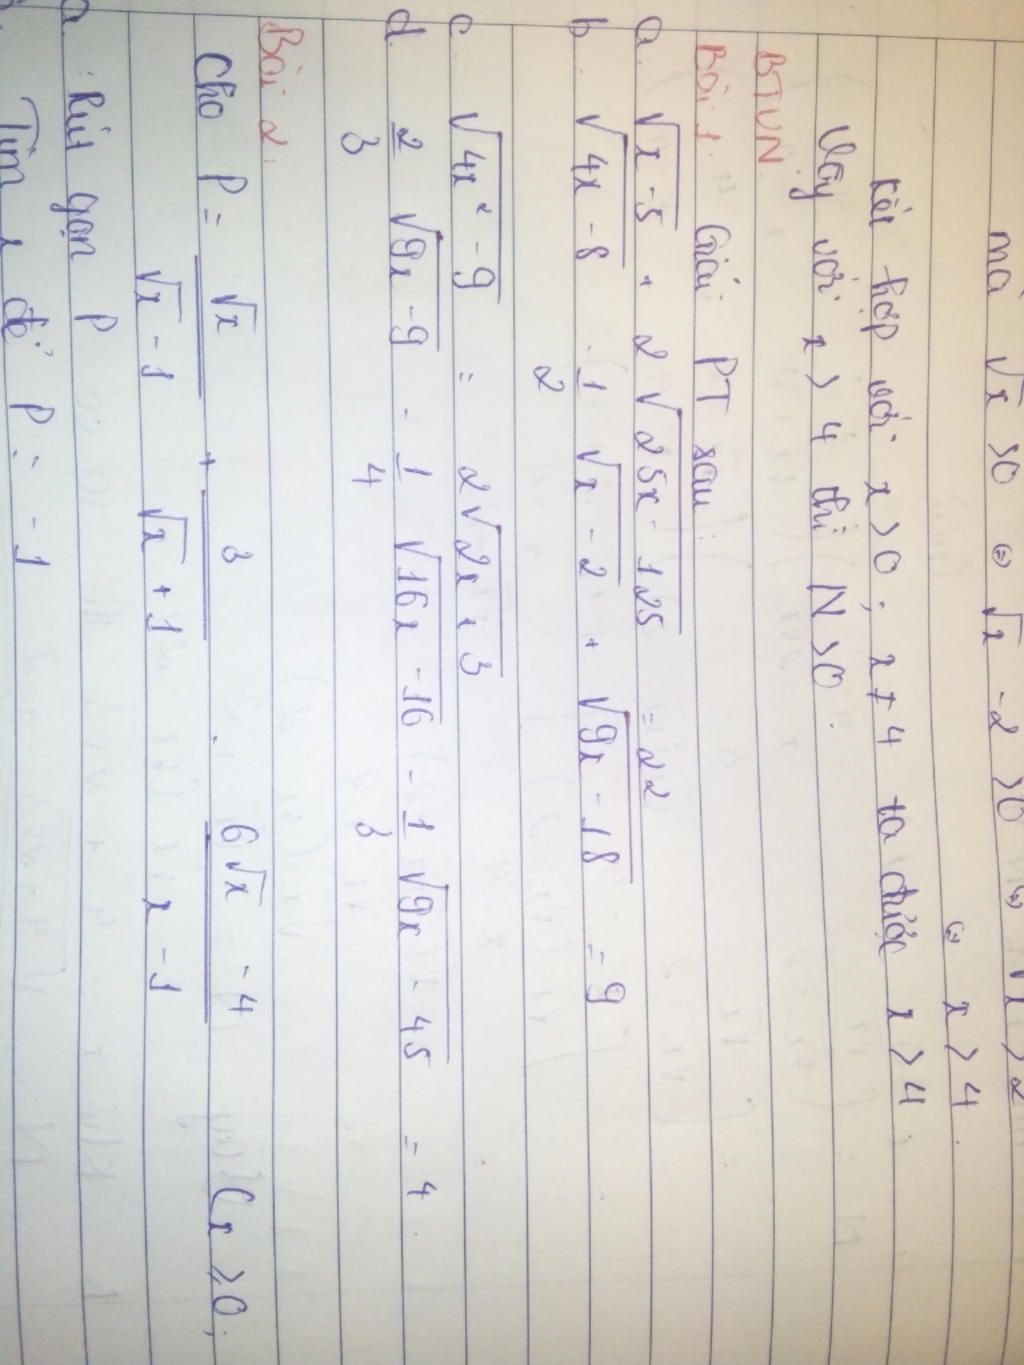 mà √x > 0 ⇔ √x - 2 > 0 ⇔ √x > 2
⇔ x > 4
Kết hợp với x > 0 ; x ≠ 4 ta được x > 4
Vậy với x > 4 thì N > 0.
BTVN
Bài 1. Giải PT sau:
a. √(x-5) + 2√(25x-125) = 22
b. √(4x-8) - 1/2 √(x-2) + √(9x-18) = 9
c. √(4x²-9) = 2√(2x+3)
d. 2/3 √(9x-9) - 1/4 √(16x-16) - 1/3 √(9x-45) = 4
Bài 2.
Cho P = √x/(√x-1) + 3/(√x+1) - (6√x-4)/(x-1) (x ≥ 0;
a. Rút gọn P
Tìm x để P = -1